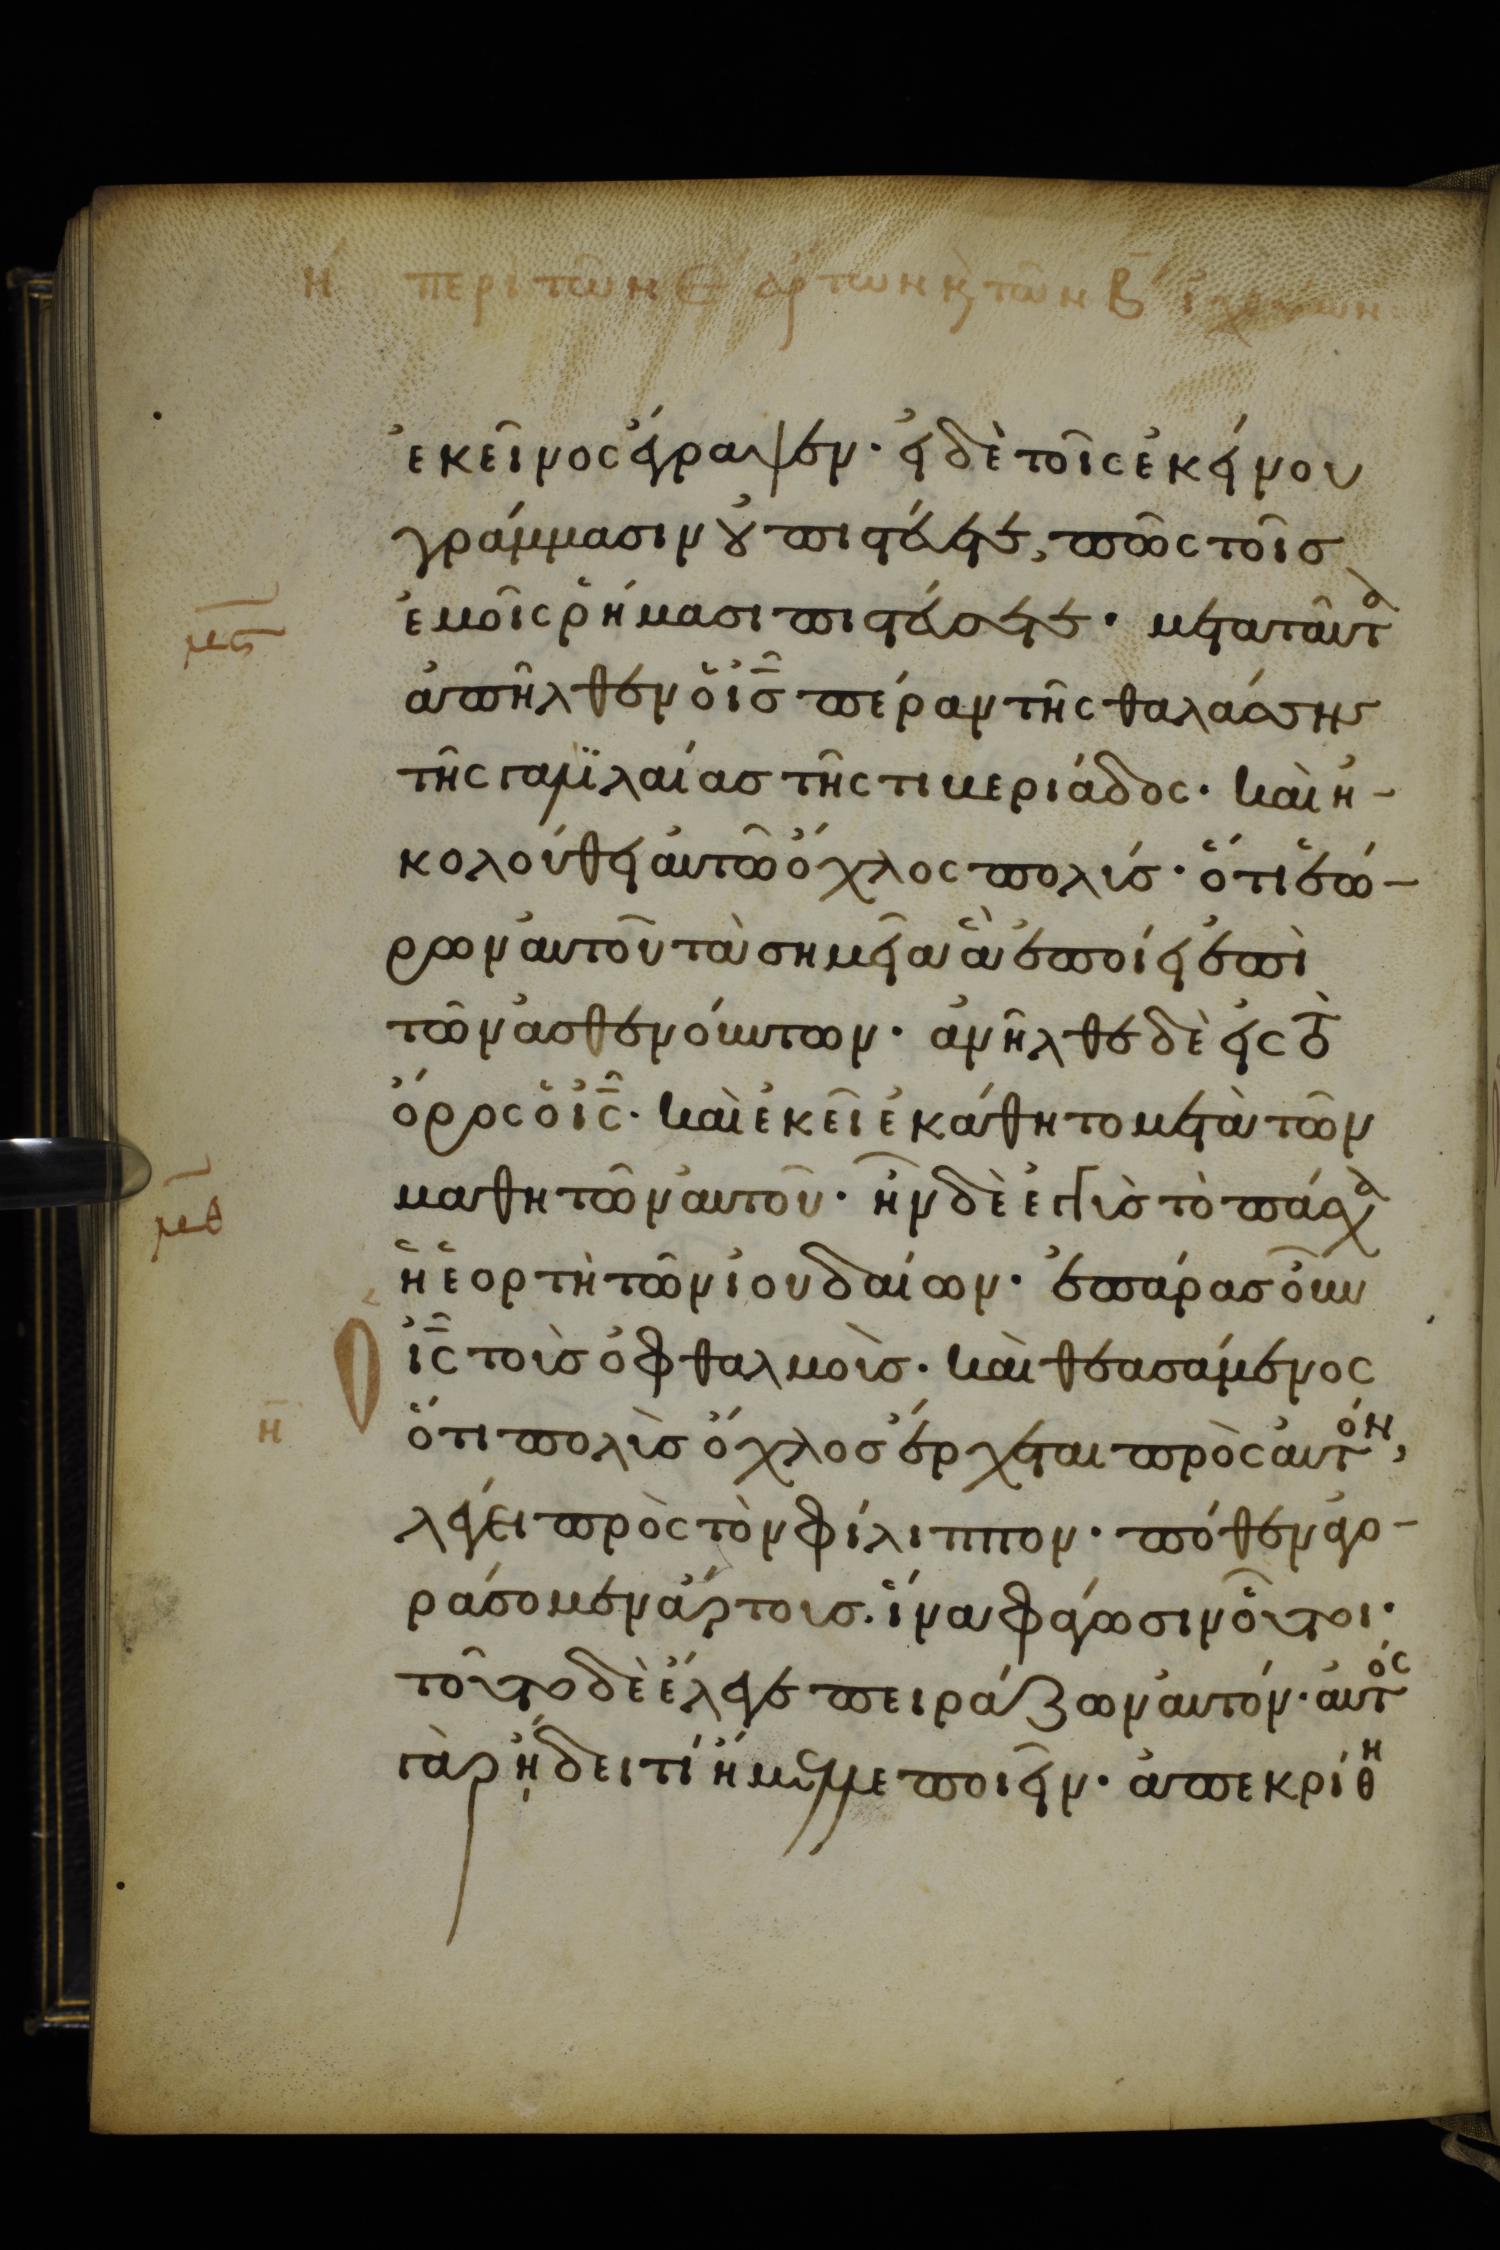 η περὶ τῶν ε ἄρτων κ τῶν β ἰχθύων
ἐκεῖνος ἔγραψεν· εἰ δὲ τοῖς ἐκείνου
γράμμασιν οὐ πιστεύετε, πῶς τοῖσ
ἐμοῖς ῥήμασι πιστεύσετε· μετα ταῦτα
ἀπῆλθεν ὁ ἰς πέραν τῆς θαλάσσης
τῆς γαλιλαίας τῆς τιβεριάδος· καὶ ἠ-
μς
κολούθει αὐτῶ ὄχλος πολύς· ὅτι ἑώ-
ρων αὐτοῦ τὰ σημεῖα ἃ ἐποίει ἐπὶ
τῶν ἀσθενούντων· ἀνῆλθε δὲ εἰς τὸ
ὄρος ὁ ἰς· καὶ ἐκεῖ ἐκάθητο μετὰ τῶν
μαθητῶν αὐτοῦ· ἦν δὲ ἐγγὺς τὸ πάσχα
μθ
ἡ ἑορτὴ τῶν ἰουδαίων· ἐπάρας οὖν
ὁ ἰς τοὺς ὀφθαλμοὺς· καὶ θεασάμενος
ὅτι πολὺς ὄχλος ἔρχεται πρὸς αὐτόν,
η
λέγει πρὸς τὸν φίλιππον· πόθεν ἀγο-
ράσομεν ἄρτους. ἵνα φάγωσιν οὗτοι·
τοῦτο δὲ ἔλεγε πειράζων αὐτόν· αὐτὸς
γὰρ ᾔδει τί ἤμελλε ποιεῖν· ἀπεκρίθη